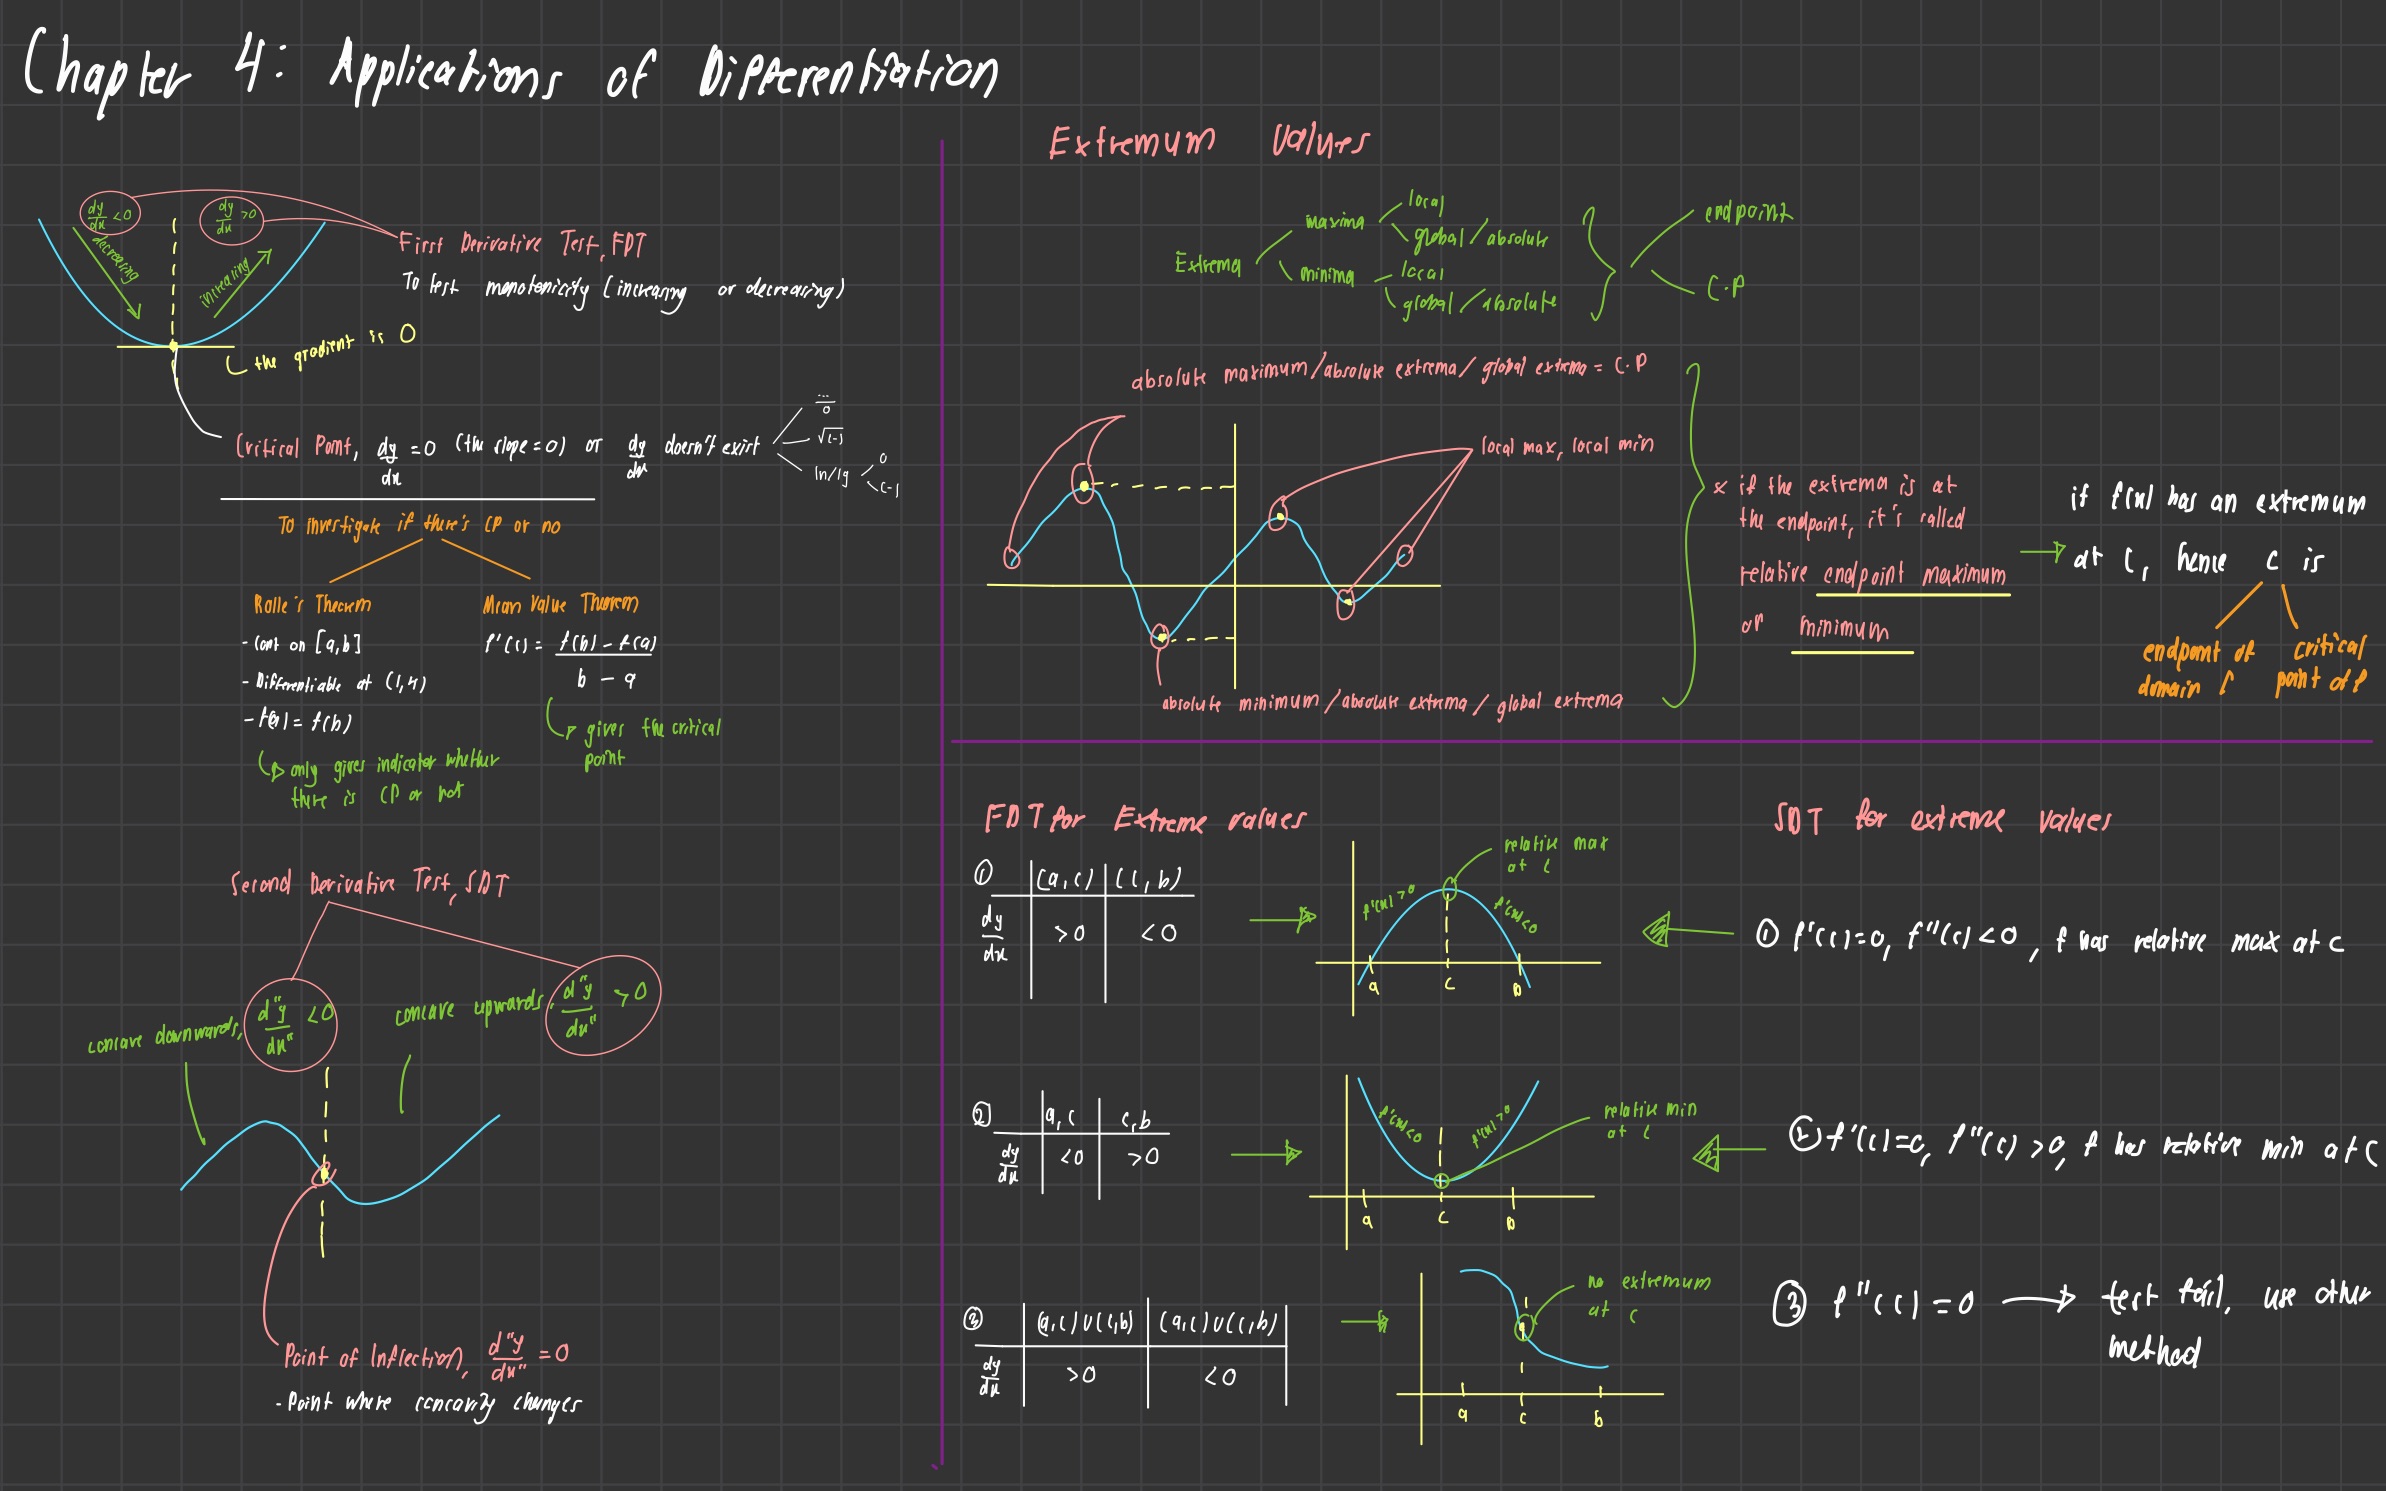 Chapter 4: Applications of Differentiation
dy/dx <0
dy/dx >0
decreasing
increasing
First Derivative Test, FDT
To test monotonicity (increasing or decreasing)
the gradient is 0
Critical Point, dy/dx = 0 (the slope = 0) or dy/dx doesn't exist
.../0
√(-)
ln/lg
0
(-)
To investigate if there's CP or no
Rolle's Theorem
- Cont on [a,b]
- Differentiable at
- f(a) = f(b)
only gives indicator whether
there is CP or not
Mean Value Theorem
f'(c) = f(b) - f(a)
b - a
gives the critical
point
Second Derivative Test, SDT
concave downwards, d"y/dx" <0
concave upwards, d"y/dx" >0
Point of Inflection, d"y/dx" = 0
- Point where concavity changes
Extremum Values
Extrema
maxima
local
global / absolute
minima
local
global / absolute
endpoint
C.P
absolute maximum/absolute extrema/ global extrema = C.P
local max, local min
absolute minimum /absolute extrema / global extrema
* if the extrema is at
the endpoint, it's called
relative endpoint maximum
or minimum
if f(x) has an extremum
at c, hence c is
endpoint of
domain f
critical
point of f
FDT for Extreme values
① (a,c) (c,b)
dy/dx >0 <0
relative max
at c
f'(x) >0
f'(x) <0
a c b
② a,c c,b
dy/dx <0 >0
relative min
at c
f'(x) <0
f'(x) >0
a c b
③ (a,c)∪(c,b) (a,c)∪(c,b)
dy/dx >0 <0
no extremum
at c
a c b
SDT for extreme values
① f'(c)=0, f"(c) <0, f has relative max at c
② f'(c)=0, f"(c) >0, f has relative min at c
③ f"(c) = 0 → test fail, use other
method